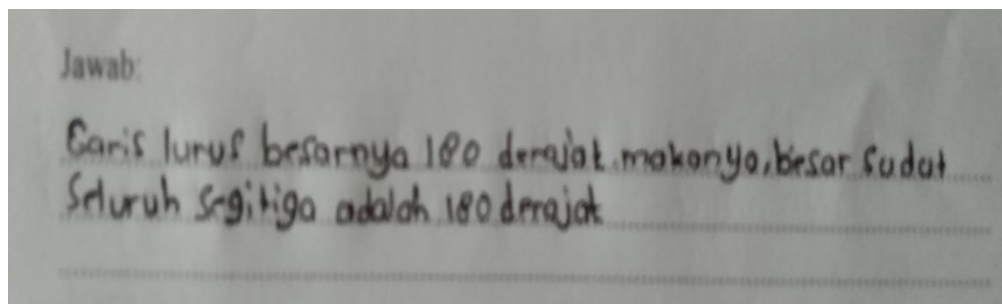 Jawab:
Garis lurus besarnya 180 derajat. makanya, besar sudut
Seluruh segitiga adalah 180 derajat